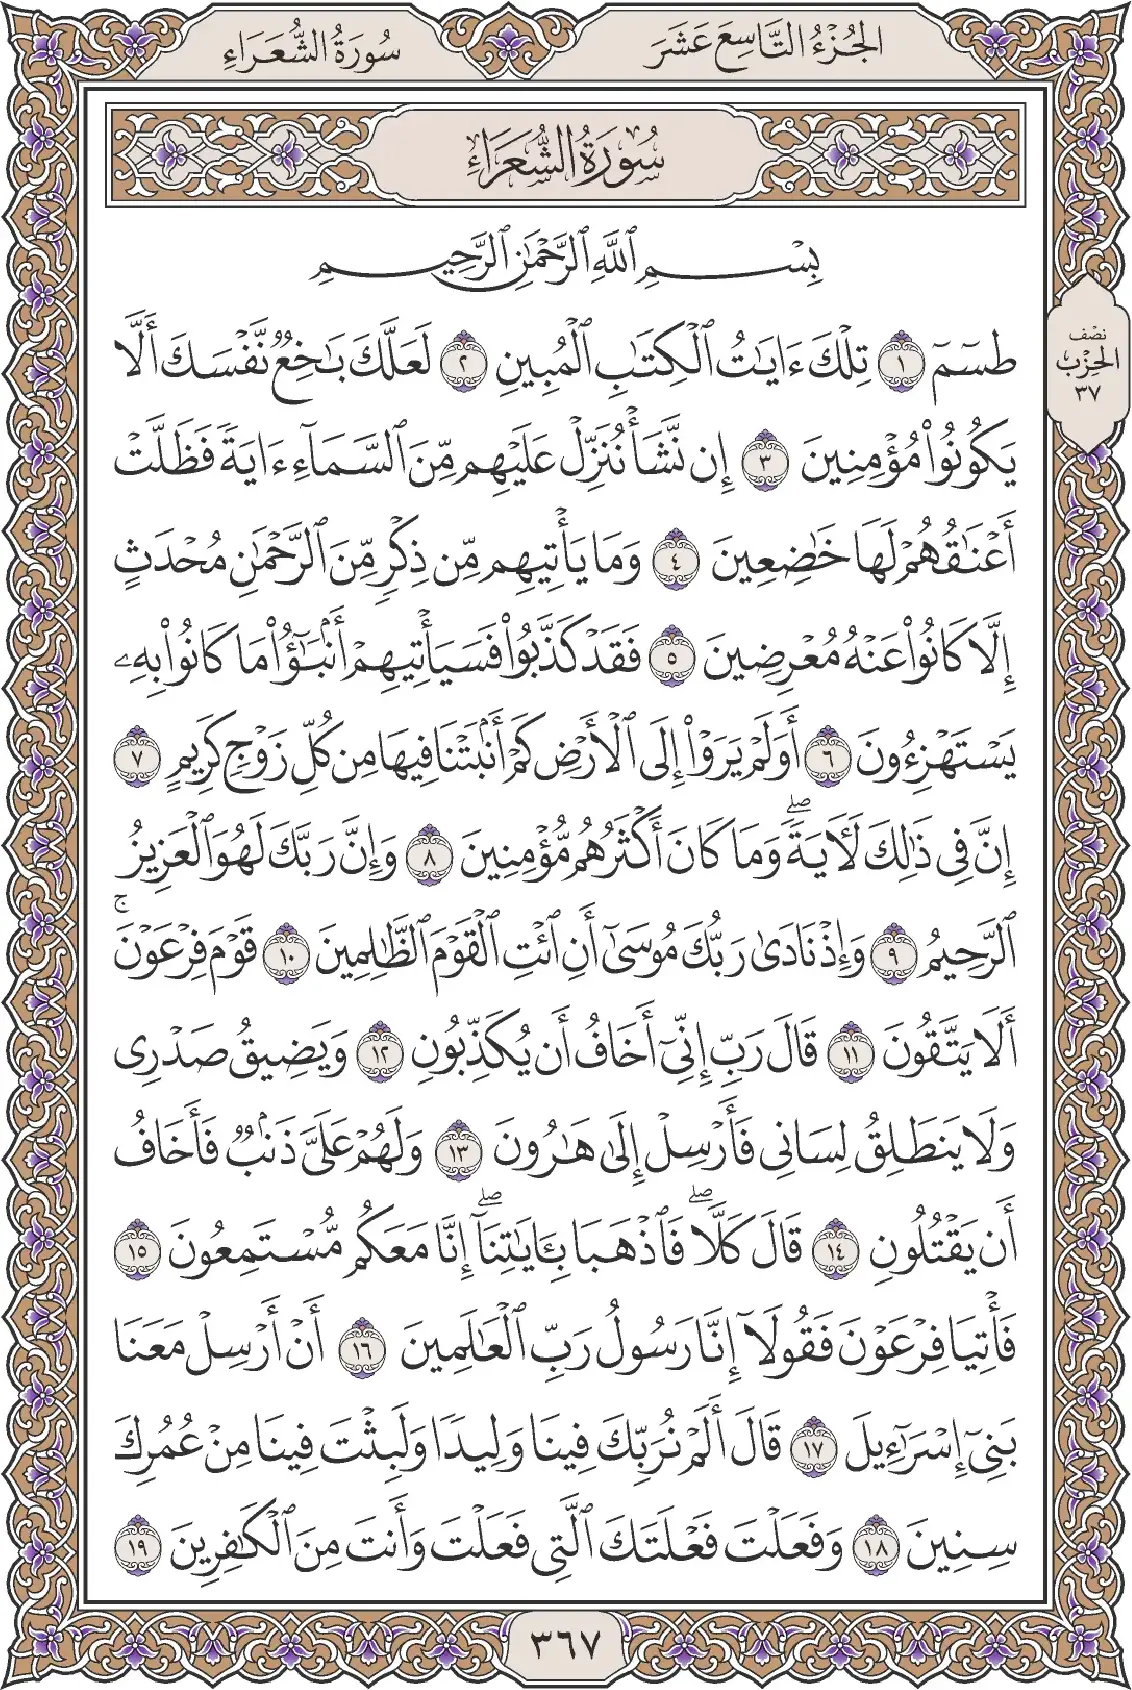 الجُزْءُ التَّاسِعَ عَشَرَ
سُورَةُ الشُّعَرَاءِ
سُورَةُ الشُّعَرَاءِ
بِسْمِ ٱللَّهِ ٱلرَّحْمَٰنِ ٱلرَّحِيمِ
نصف
الحزب
٣٧
طسٓمٓ ١ تِلْكَ ءَايَٰتُ ٱلْكِتَٰبِ ٱلْمُبِينِ ٢ لَعَلَّكَ بَٰخِعٌ نَّفْسَكَ أَلَّا
يَكُونُوا۟ مُؤْمِنِينَ ٣ إِن نَّشَأْ نُنَزِّلْ عَلَيْهِم مِّنَ ٱلسَّمَآءِ ءَايَةً فَظَلَّتْ
أَعْنَٰقُهُمْ لَهَا خَٰضِعِينَ ٤ وَمَا يَأْتِيهِم مِّن ذِكْرٍ مِّنَ ٱلرَّحْمَٰنِ مُحْدَثٍ
إِلَّا كَانُوا۟ عَنْهُ مُعْرِضِينَ ٥ فَقَدْ كَذَّبُوا۟ فَسَيَأْتِيهِمْ أَنۢبَٰٓؤُا۟ مَا كَانُوا۟ بِهِۦ
يَسْتَهْزِءُونَ ٦ أَوَلَمْ يَرَوْا۟ إِلَى ٱلْأَرْضِ كَمْ أَنۢبَتْنَا فِيهَا مِن كُلِّ زَوْجٍ كَرِيمٍ ٧
إِنَّ فِى ذَٰلِكَ لَـَٔايَةً ۖ وَمَا كَانَ أَكْثَرُهُم مُّؤْمِنِينَ ٨ وَإِنَّ رَبَّكَ لَهُوَ ٱلْعَزِيزُ
ٱلرَّحِيمُ ٩ وَإِذْ نَادَىٰ رَبُّكَ مُوسَىٰٓ أَنِ ٱئْتِ ٱلْقَوْمَ ٱلظَّٰلِمِينَ ١٠ قَوْمَ فِرْعَوْنَ ۚ
أَلَا يَتَّقُونَ ١١ قَالَ رَبِّ إِنِّىٓ أَخَافُ أَن يُكَذِّبُونِ ١٢ وَيَضِيقُ صَدْرِى
وَلَا يَنطَلِقُ لِسَانِى فَأَرْسِلْ إِلَىٰ هَٰرُونَ ١٣ وَلَهُمْ عَلَىَّ ذَنۢبٌ فَأَخَافُ
أَن يَقْتُلُونِ ١٤ قَالَ كَلَّا ۖ فَٱذْهَبَا بِـَٔايَٰتِنَآ ۖ إِنَّا مَعَكُم مُّسْتَمِعُونَ ١٥
فَأْتِيَا فِرْعَوْنَ فَقُولَآ إِنَّا رَسُولُ رَبِّ ٱلْعَٰلَمِينَ ١٦ أَنْ أَرْسِلْ مَعَنَا
بَنِىٓ إِسْرَٰٓءِيلَ ١٧ قَالَ أَلَمْ نُرَبِّكَ فِينَا وَلِيدًا وَلَبِثْتَ فِينَا مِنْ عُمُرِكَ
سِنِينَ ١٨ وَفَعَلْتَ فَعْلَتَكَ ٱلَّتِى فَعَلْتَ وَأَنتَ مِنَ ٱلْكَٰفِرِينَ ١٩
٣٦٧